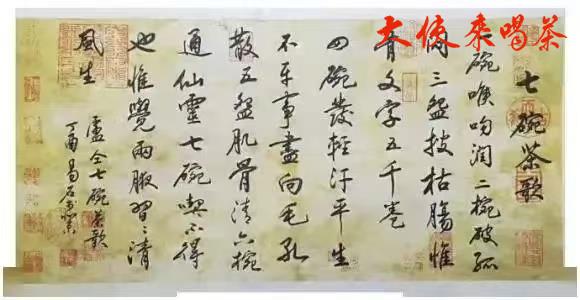 大侠来喝茶
七碗茶歌
一碗喉吻潤二椀破孤
悶三盌搜枯腸惟
有文字五千卷
四碗發輕汗平生
不平事盡向毛孔
散五盌肌骨清六椀
通仙靈七碗喫不得
也惟覺兩腋習々清
風生
盧仝七碗茶歌
丁酉易石書